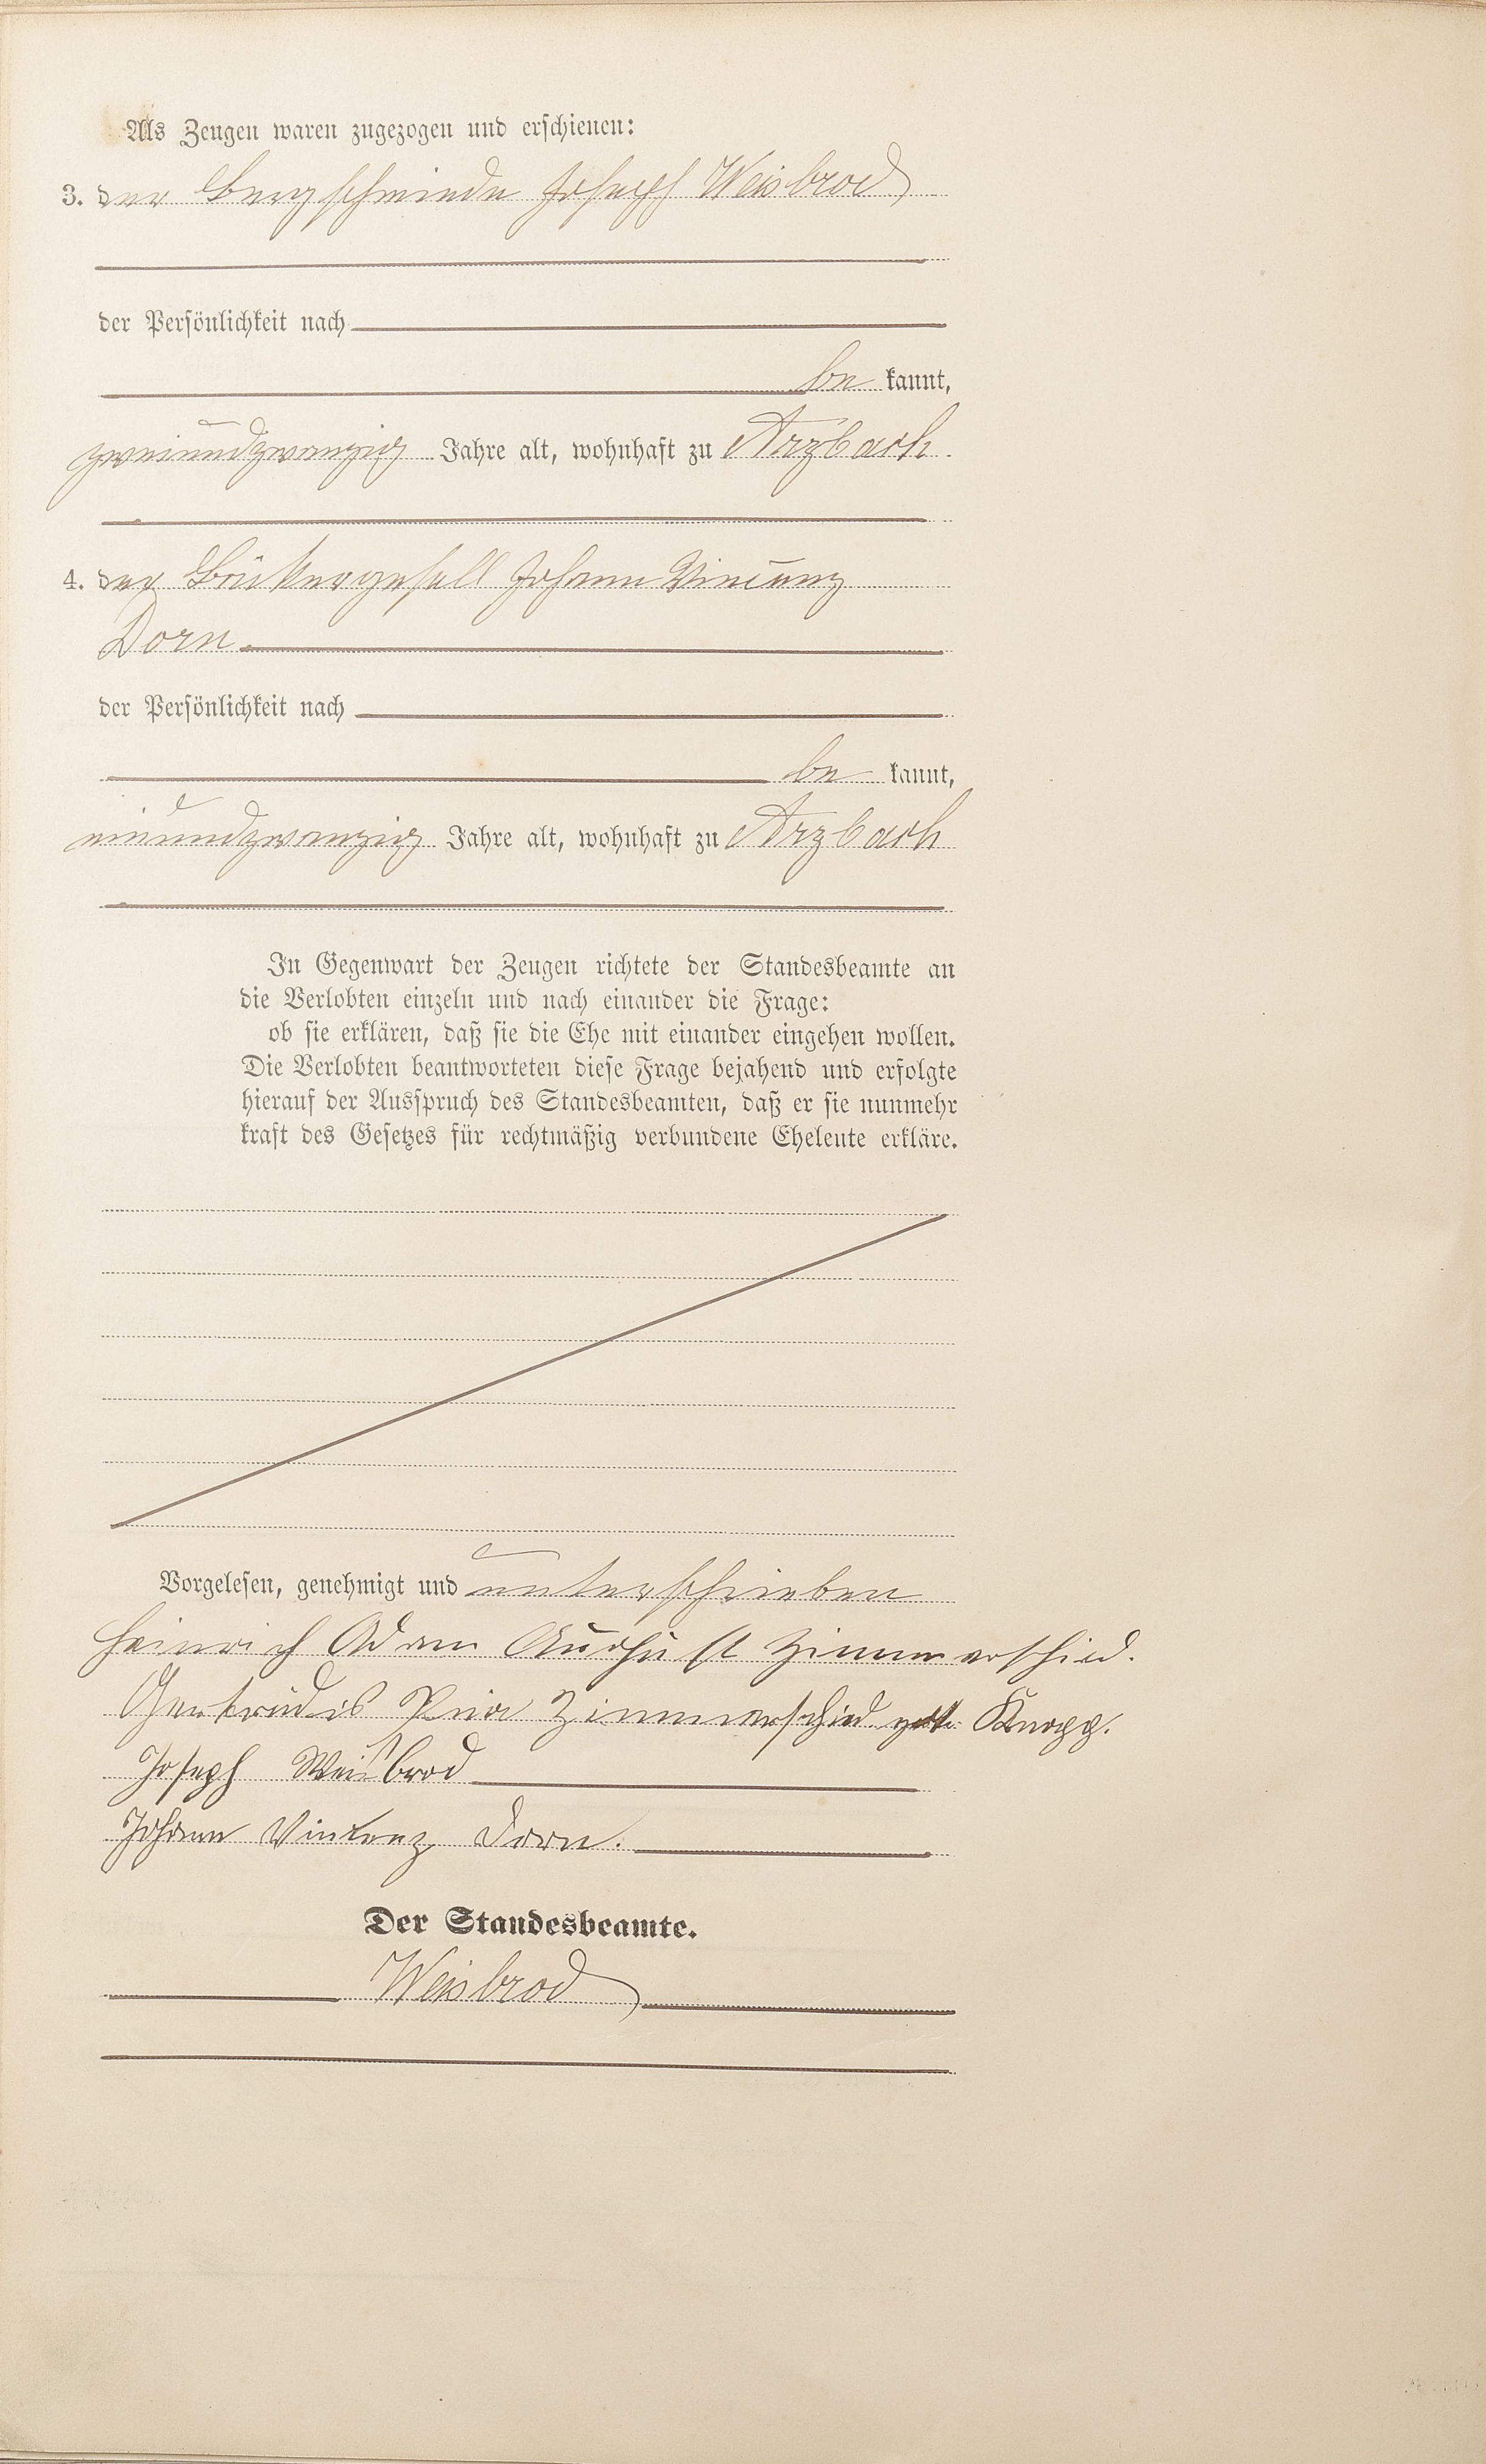 Als Zeugen waren zugezogen und erschienen:
3. der Bergschmiede Joseph Weisbrod
der Persönlichkeit nach
be kannt,
zweiundzwanzig Jahre alt, wohnhaft zu Arzbach
4. der Bäckergesell Johann Vincenz
Dorn
der Persönlichkeit nach
be kannt,
einundzwanzig Jahre alt, wohnhaft zu Arzbach
In Gegenwart der Zeugen richtete der Standesbeamte an
die Verlobten einzeln und nach einander die Frage:
ob sie erklären, daß sie die Ehe mit einander eingehen wollen.
Die Verlobten beantworteten diese Frage bejahend und erfolgte
hierauf der Ausspruch des Standesbeamten, daß er sie nunmehr
kraft des Gesetzes für rechtmäßig verbundene Eheleute erkläre.
Vorgelesen, genehmigt und unterschrieben
Heinrich Adam August Zimmerschied.
Gertrudis Zimmerschied Knopp.
Joseph Weisbrod
Johann Vincenz Dorn.
Der Standesbeamte.
Weisbrod